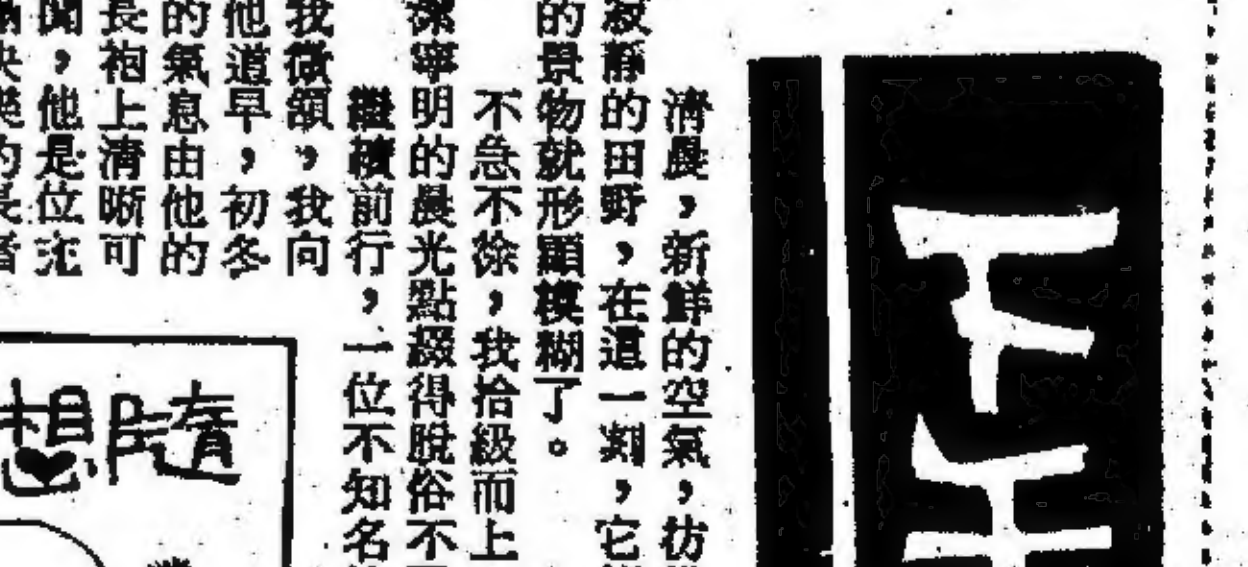 下
清晨，新鮮的空氣，彷
寂靜的田野，在這一刻，它
的景物就形顯模糊了。
不急不徐，我拾級而上
寧明的晨光點綴得脫俗不
繼續前行，一位不知名
我微頷，我向
他道早，初冬
的氣息由他的
長袍上清晰可
聞，他是位
的長者
隨想